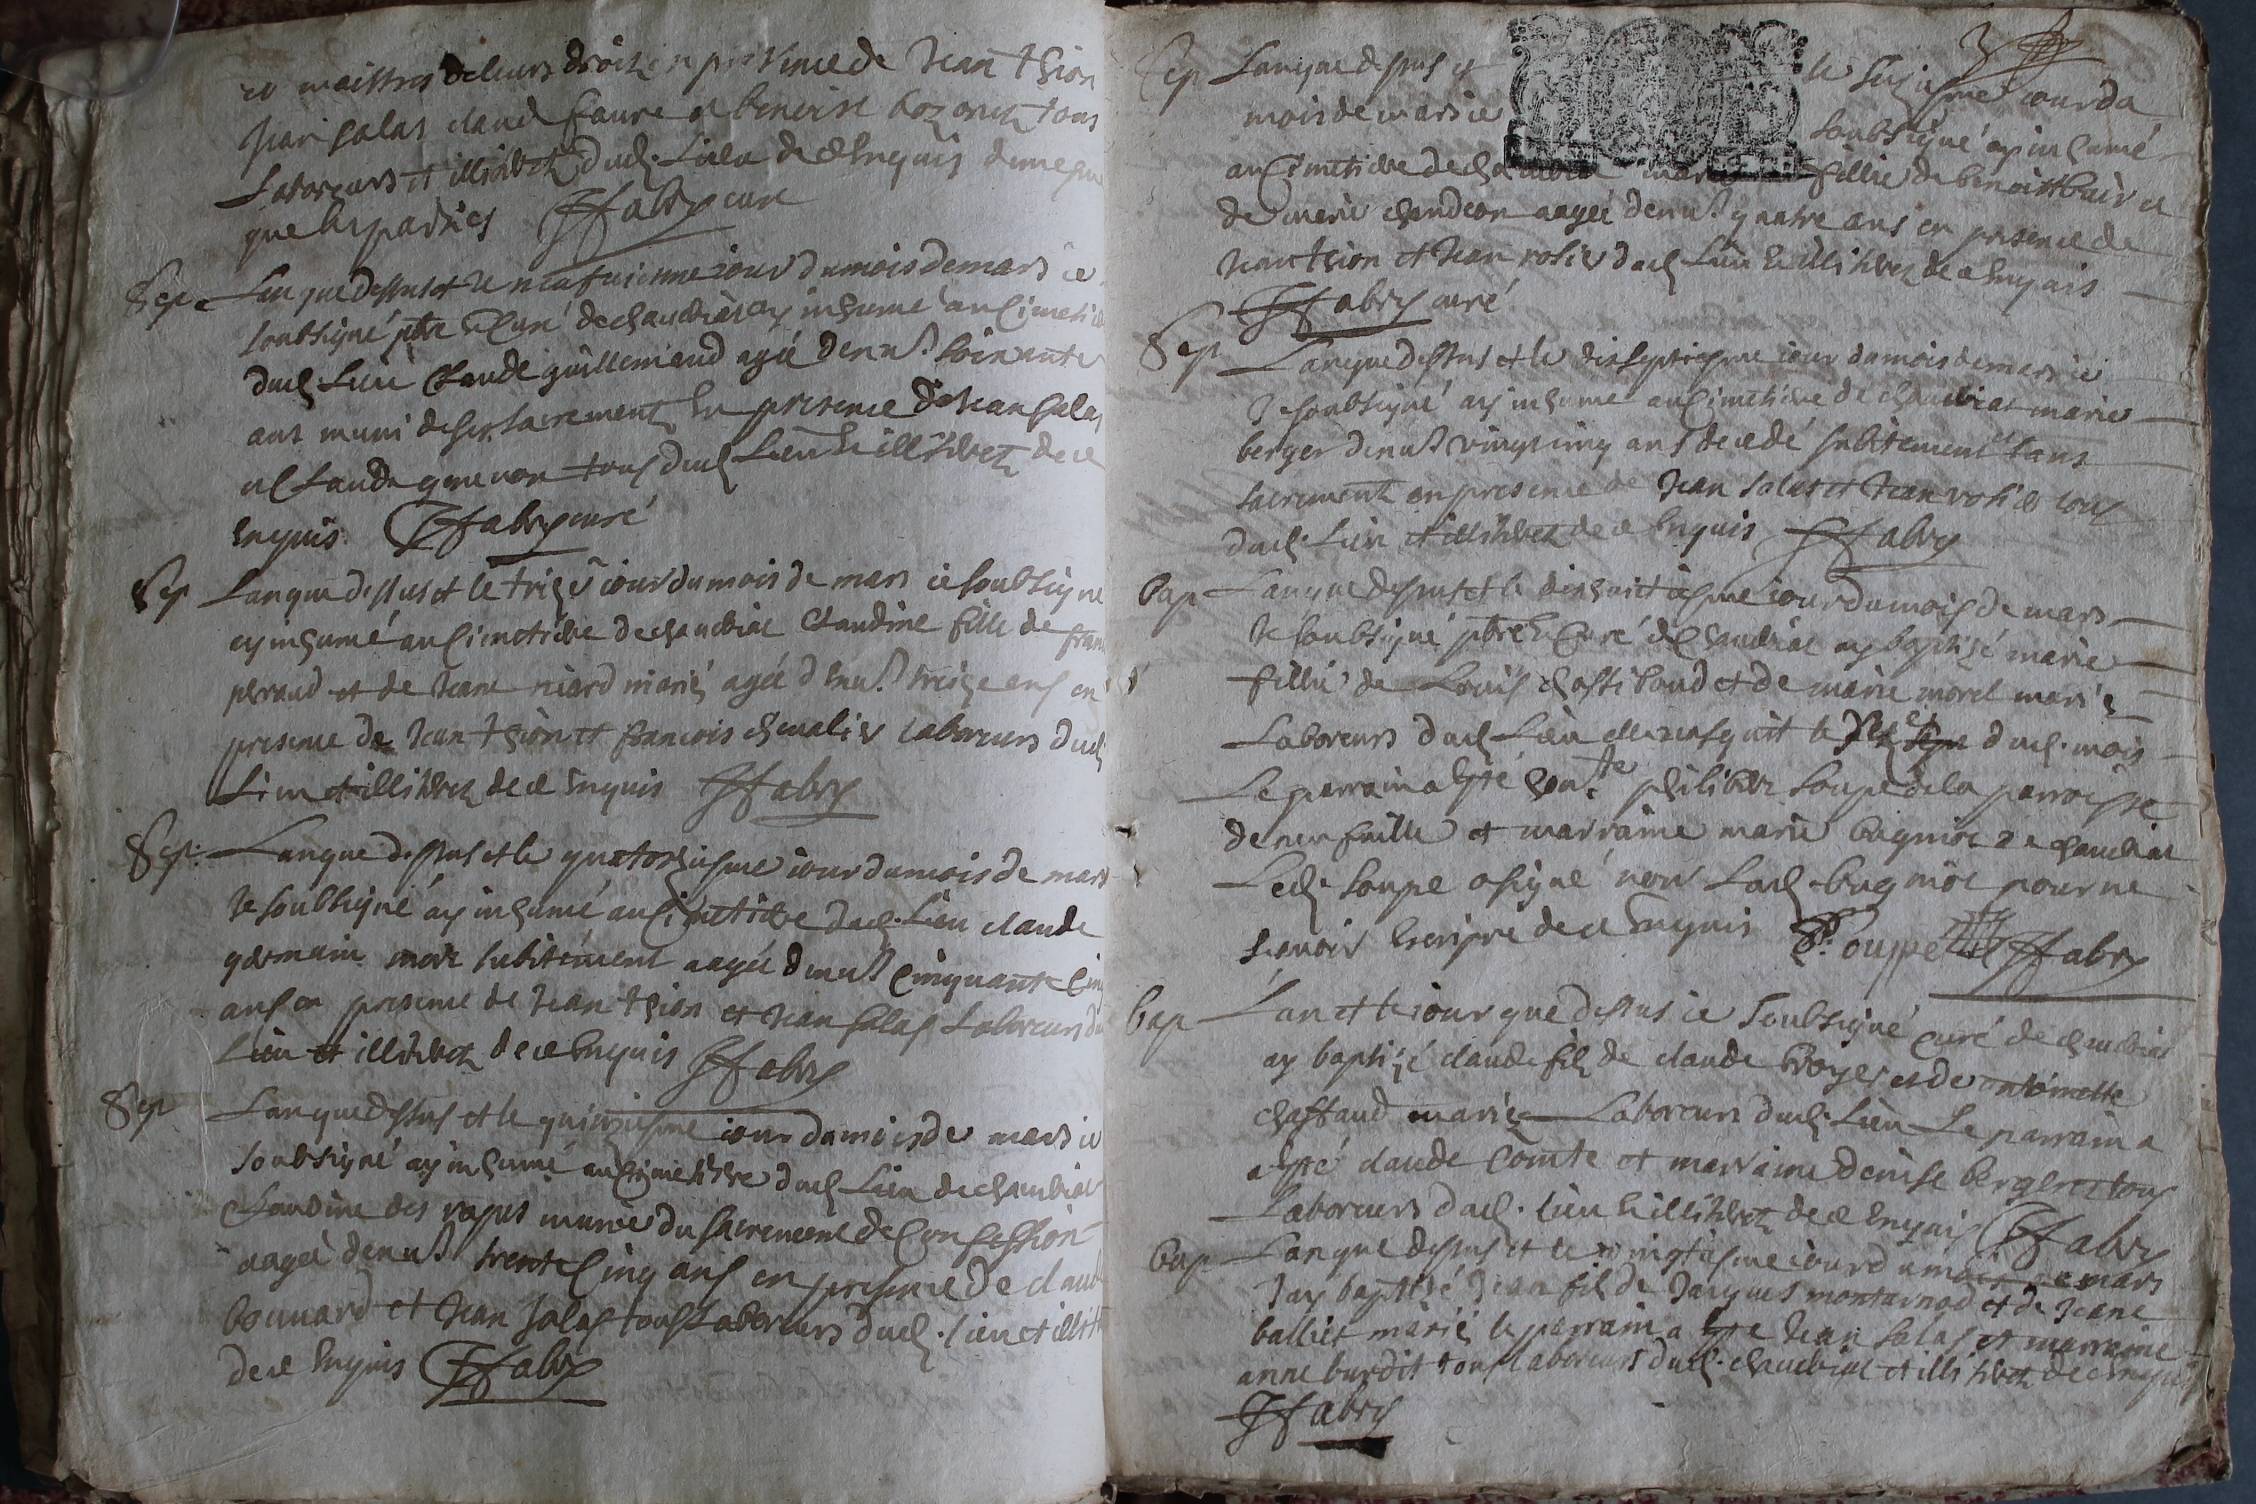 et maistres de leurs droitz en presence de Jean thion
Jean salas claude faure et benoist bozonet tous
Laboreurs et illitérés dud. Lieu de ce enquis de mesme
que les parties FFabry curé
Sep. Lan que dessus et le neufvienne iour du mois de mars ie
soubsigné pbre et Curé de chaveiriat ay inhumé au Cimetiere
dud. Lieu Claude guillemaud agé denv. soixante
ans muni de ses sacrementz En presence de Jean salas
et Claude guenon tous dud. Lieu Et illitérés de ce
Enquis FFabry curé
Sep Lan que dessus et le treize iour du mois de mars ie soubsigné
ay inhumé au Cimetiere de chaveiriat Claudine fille de fran
peraud et de Jeane niard mariés agée denv. treize ans en
presence de Jean thion et francois chevalier laboreurs dud.
Lieu et illitérés de ce Enquis FFabry
Sep. Lan que dessus et le quatorziesme iour du mois de mars
Je soubsigné ay inhumé au Cimetiere dud. Lieu claude
germain mort subitement aagée denv. Cinquante Cinq
ans en presence de Jean thion et Jean salas Laboreurs du
Lieu et illitérés de ce Enquis FFabry
Sep Lan que dessus et le quinziesme iour du mois de mars ie
soubsigné ay inhumé au Cimetiere dud. Lieu de chaveiriat
Claudine des vapes munie du sacrement de Confession
aagée denv. trente Cinq ans en presence de claude
bouvard et Jean salas tous Laboreurs dud. lieu et illit
de ce Enquis FFabry
3
Sep Lan que dessus et le seiziesme iour du
mois de mars ie soubsigné ay inhumé
au Cimetiere de chaveiriat fillie de benoist et
de marie chandeon aagée denv. quatre ans en presence de
Jean thion et Jean rosier dud. Lieu Et illitérés de ce Enquis
FFabry curé
Sep Lan que dessus et le dixseptiesme iour du mois de mars ie
Je soubsigné ay inhumé au Cimetiere de chaveiriat marie
berger denv. vingt cinq ans decedé subitement et sans
sacrementz en presence de Jean salas et Jean rosier tous
dud. Lieu et illitérés de ce Enquis FFabry
bap Lan que dessus et le dixhuictiesme iour du mois de mars
Je soubsigné pbre Et Curé de chaveiriat ay baptizé marie
fillie de Louis chastiboud et de marie morel mariés
Laboreurs dud. Lieu elle nasquit le dud. mois
Le parrain a Esté hon.te philibert soupe de la parroisse
de neufville et marraine marie bugniot de chaveiriat
Led. soupe a signé non Lad. bugniot pour ne
scavoir Escripre de ce Enquis P. Souppe FFabry
bap Lan et le iour que dessus ie soubsigné curé de chaveiriat
ay baptizé claude filz de claude broyer et de antoinette
chaffaud mariés Laboreurs dud. Lieu Le parrain a
a Esté claude Comte et marraine denise berger et tous
Laboreurs dud. lieu Et illitérés de ce Enquis FFabry
bap Lan que dessus et le vingtiesme iour du mois de mars
Jay baptizé Jean filz de Jacques montarnod et de Jeane
balliet mariés le parrain a Esté Jean salas et marraine
anne burdit tous laboreurs dud. chaveiriat et illitérés de ce Enquis
FFabry